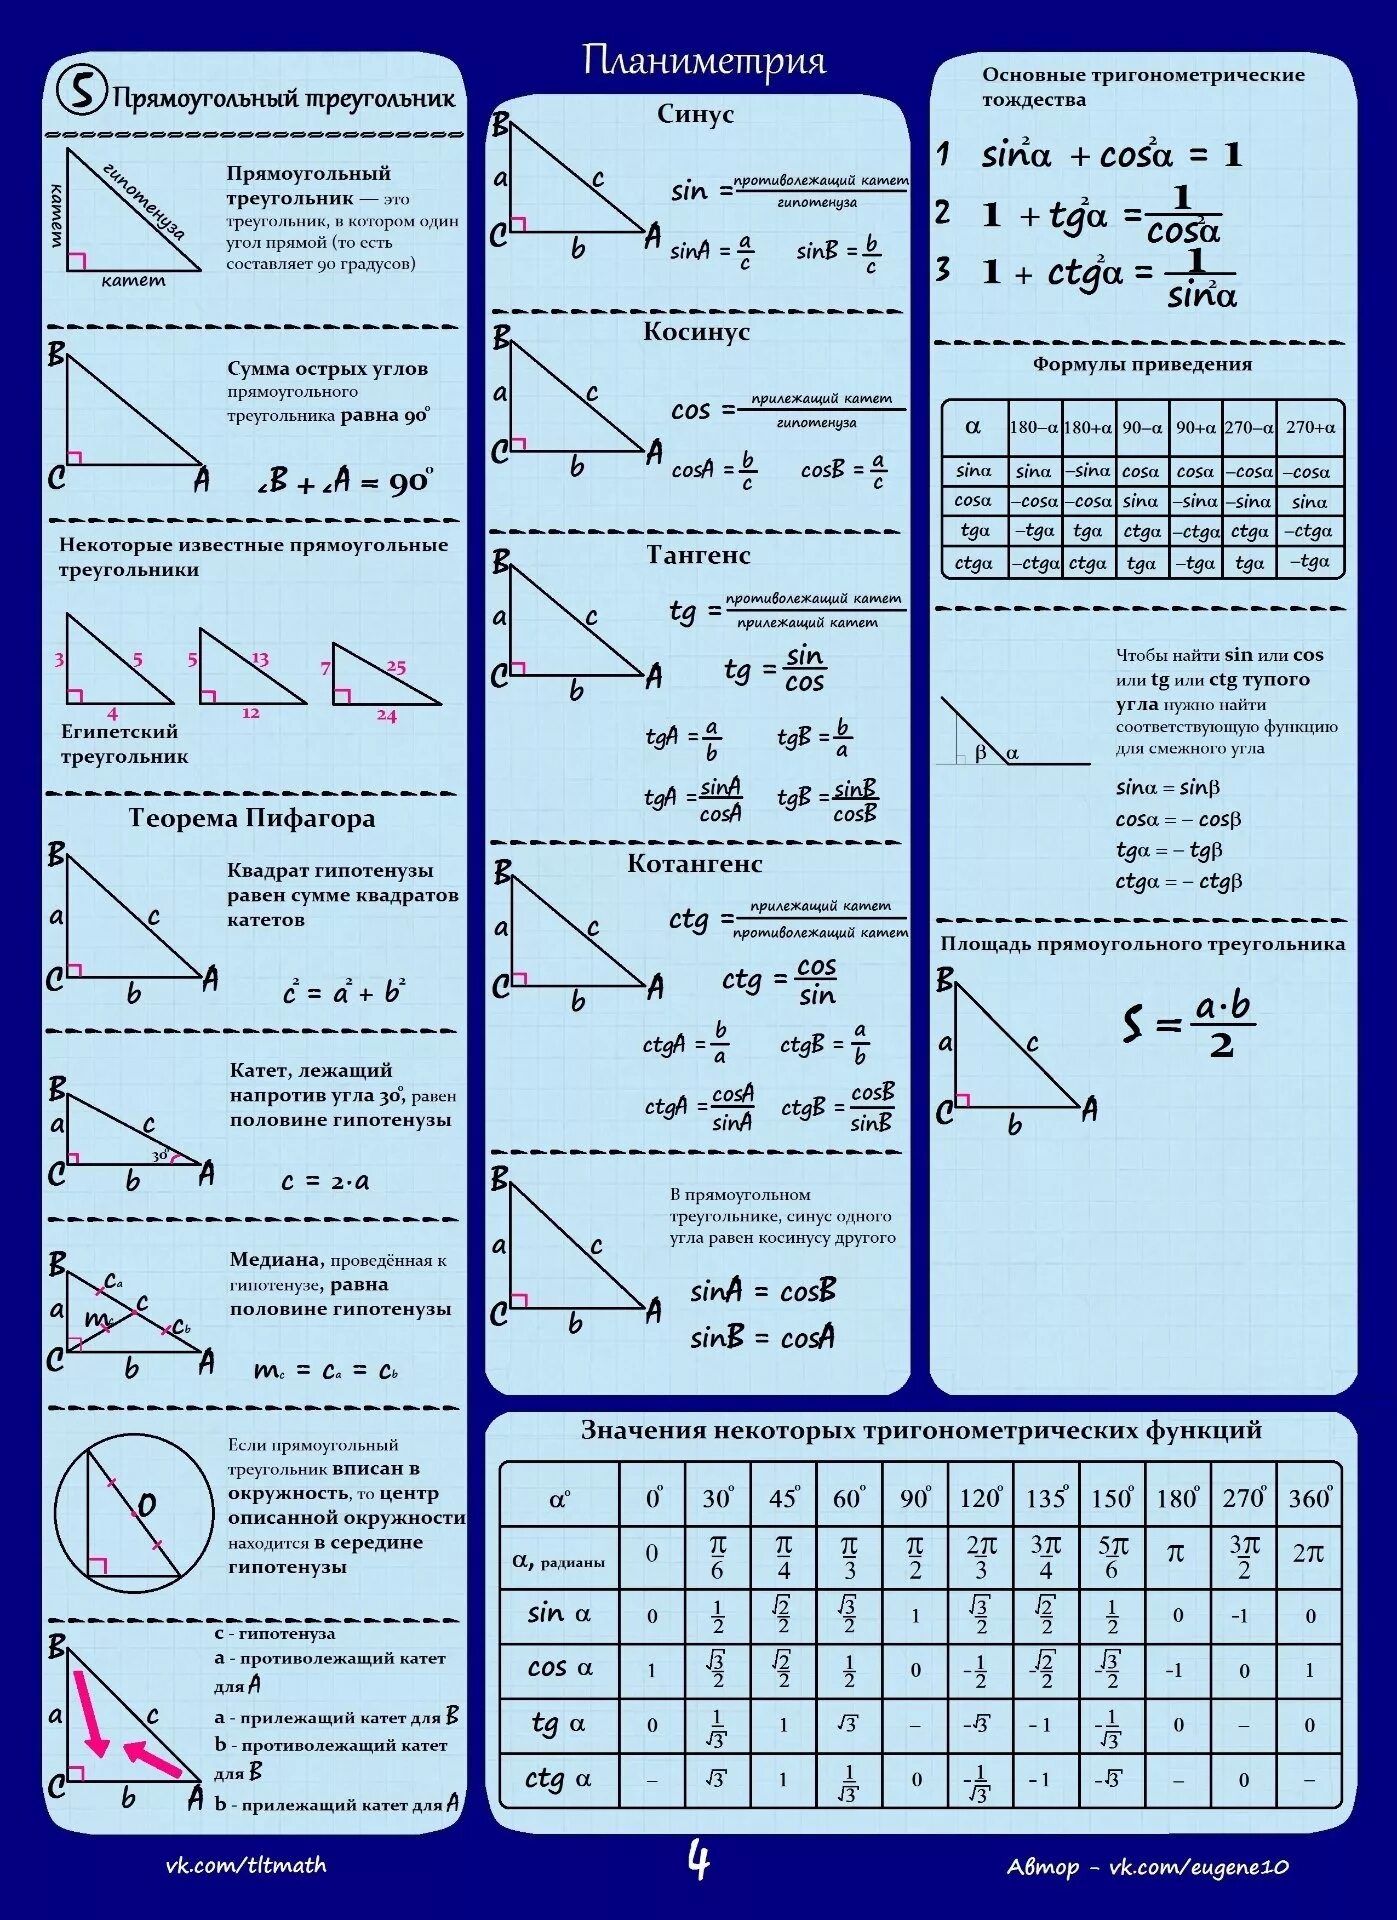 Планиметрия
5 Прямоугольный треугольник
катет
гипотенуза
катет
Прямоугольный
треугольник — это
треугольник, в котором один
угол прямой (то есть
составляет 90 градусов)
B
C
A
Сумма острых углов
прямоугольного
треугольника равна 90°
∠B + ∠A = 90°
Некоторые известные прямоугольные
треугольники
3 5 4
5 13 12
7 25 24
Египетский
треугольник
Теорема Пифагора
B
a c
C b A
Квадрат гипотенузы
равен сумме квадратов
катетов
c² = a² + b²
B
a c
30°
C b A
Катет, лежащий
напротив угла 30°, равен
половине гипотенузы
c = 2·a
B
cₐ
a c
m꜀ c_b
C b A
Медиана, проведённая к
гипотенузе, равна
половине гипотенузы
m_c = c_a = c_b
O
Если прямоугольный
треугольник вписан в
окружность, то центр
описанной окружности
находится в середине
гипотенузы
B
a c
C b A
c - гипотенуза
a - противолежащий катет
для A
a - прилежащий катет для B
b - противолежащий катет
для B
b - прилежащий катет для A
Синус
B
a c
C b A
sin = противолежащий катет / гипотенуза
sinA = a/c sinB = b/c
Косинус
B
a c
C b A
cos = прилежащий катет / гипотенуза
cosA = b/c cosB = a/c
Тангенс
B
a c
C b A
tg = противолежащий катет / прилежащий катет
tg = sin/cos
tgA = a/b tgB = b/a
tgA = sinA/cosA tgB = sinB/cosB
Котангенс
B
a c
C b A
ctg = прилежащий катет / противолежащий катет
ctg = cos/sin
ctgA = b/a ctgB = a/b
ctgA = cosA/sinA ctgB = cosB/sinB
B
a c
C b A
В прямоугольном
треугольнике, синус одного
угла равен косинусу другого
sinA = cosB
sinB = cosA
Основные тригонометрические
тождества
1 sin²α + cos²α = 1
2 1 + tg²α = 1/cos²α
3 1 + ctg²α = 1/sin²α
Формулы приведения
α 180–α 180+α 90–α 90+α 270–α 270+α
sinα sinα –sinα cosα cosα –cosα –cosα
cosα –cosα –cosα sinα –sinα –sinα sinα
tgα –tgα tgα ctgα –ctgα ctgα –ctgα
ctgα –ctgα ctgα tgα –tgα tgα –tgα
β α
Чтобы найти sin или cos
или tg или ctg тупого
угла нужно найти
соответствующую функцию
для смежного угла
sinα = sinβ
cosα = – cosβ
tgα = – tgβ
ctgα = – ctgβ
Площадь прямоугольного треугольника
B
a c
C b A
S = a·b/2
Значения некоторых тригонометрических функций
α° 0° 30° 45° 60° 90° 120° 135° 150° 180° 270° 360°
α, радианы 0 π/6 π/4 π/3 π/2 2π/3 3π/4 5π/6 π 3π/2 2π
sin α 0 1/2 √2/2 √3/2 1 √3/2 √2/2 1/2 0 -1 0
cos α 1 √3/2 √2/2 1/2 0 -1/2 -√2/2 -√3/2 -1 0 1
tg α 0 1/√3 1 √3 – -√3 -1 -1/√3 0 – 0
ctg α – √3 1 1/√3 0 -1/√3 -1 -√3 – 0 –
vk.com/tltmath
4
Автор - vk.com/eugene10